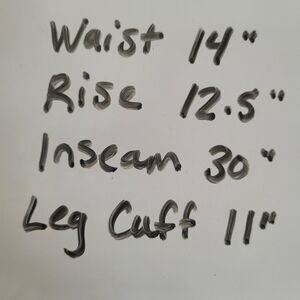 Waist 14"
Rise 12.5"
Inseam 30"
Leg Cuff 11"